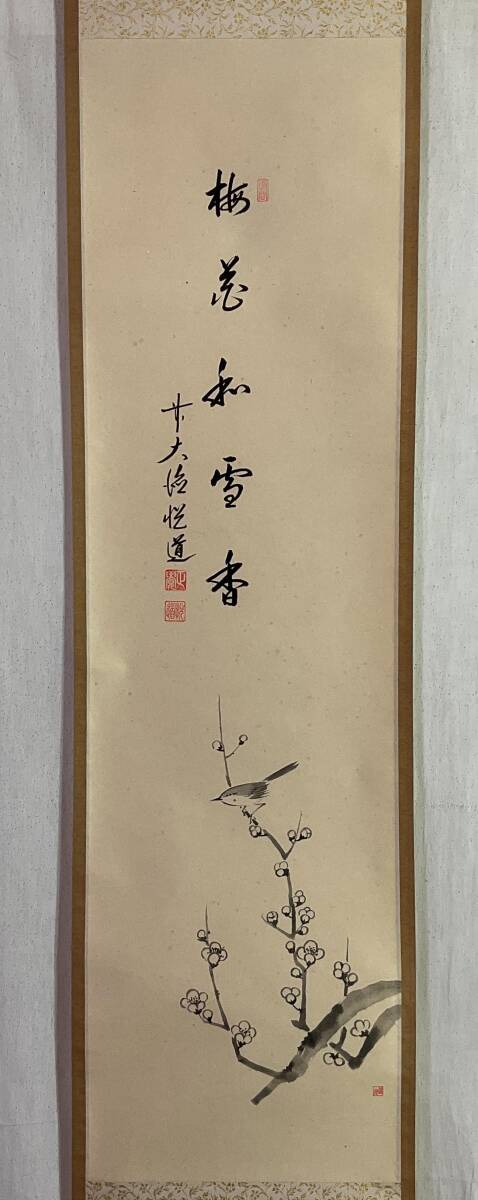 梅花和雪香
大徳悦道